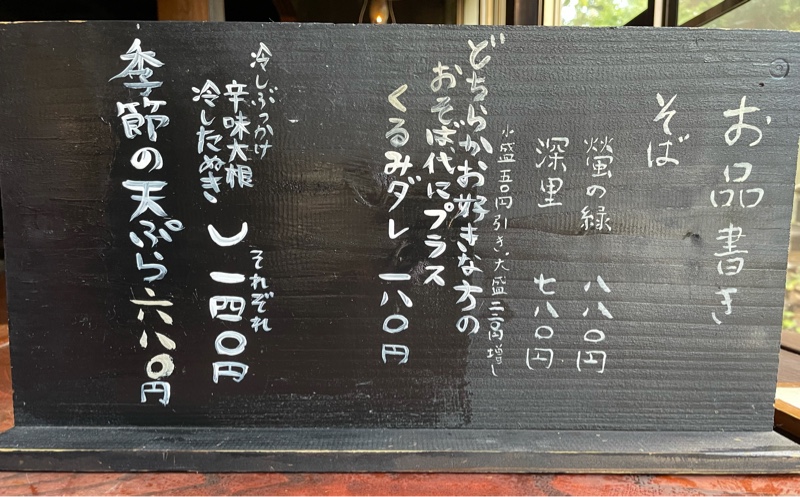 お品書き
そば
螢の緑 八八〇円
深里 七八〇円
小盛 五〇円引き、大盛 二二〇円増し
どちらかお好きな方の
おそば代にプラス
くるみダレ 一八〇円
冷しぶっかけ
辛味大根
冷したぬき
それぞれ
一四〇円
季節の天ぷら 六八〇円